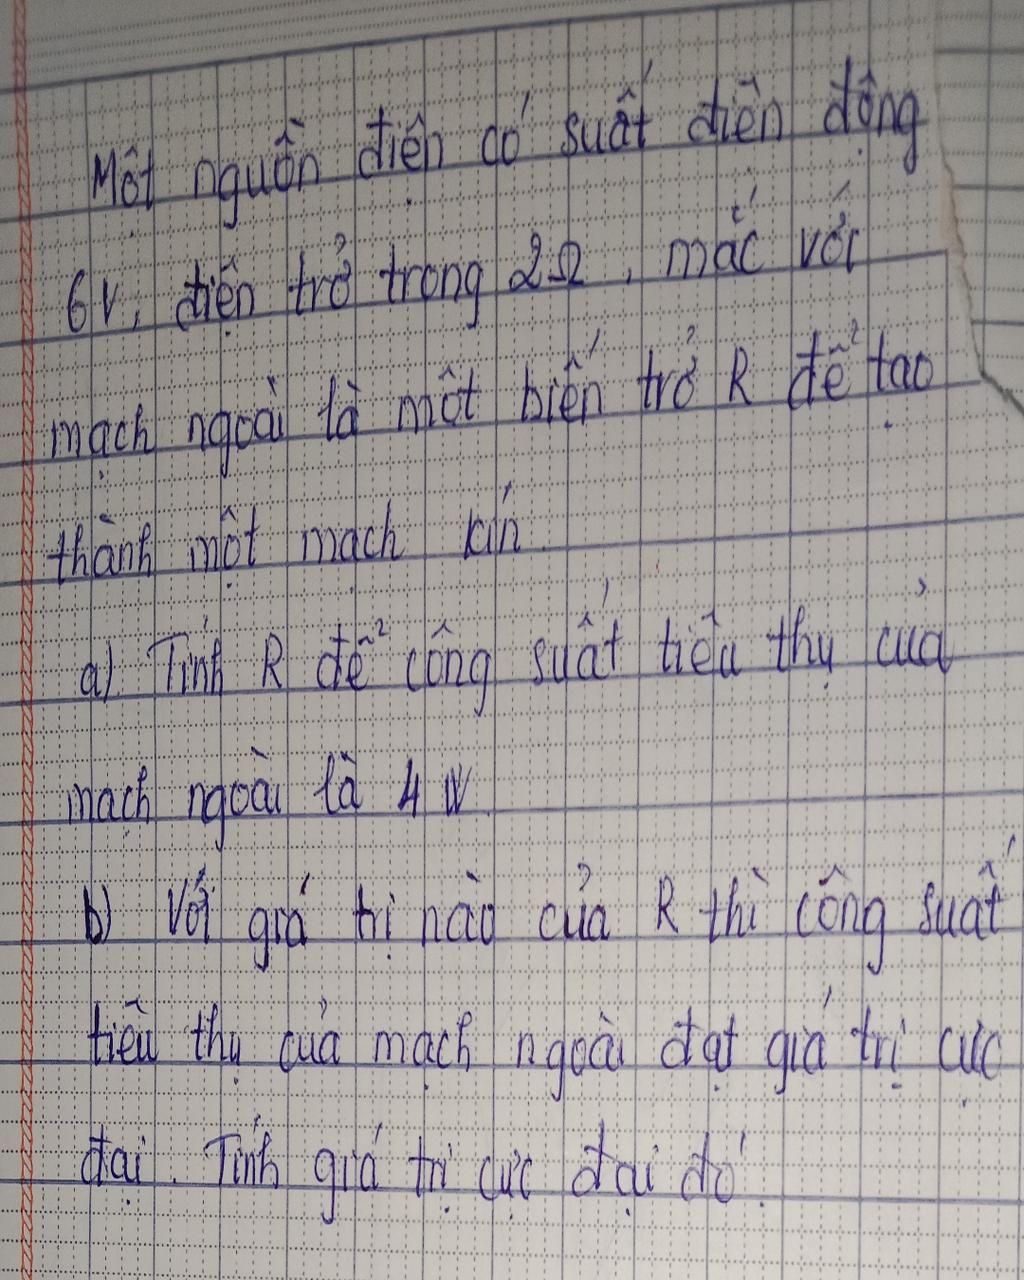 Một nguồn điện có suất điện động
6V, điện trở trong 2Ω, mắc với
mạch ngoài là một biến trở R để tạo
thành một mạch kín
a) Tính R để công suất tiêu thụ của
mạch ngoài là 4 W.
b) Với giá trị nào của R thì công suất
tiêu thụ của mạch ngoài đạt giá trị cực
đại. Tính giá trị cực đại đó.